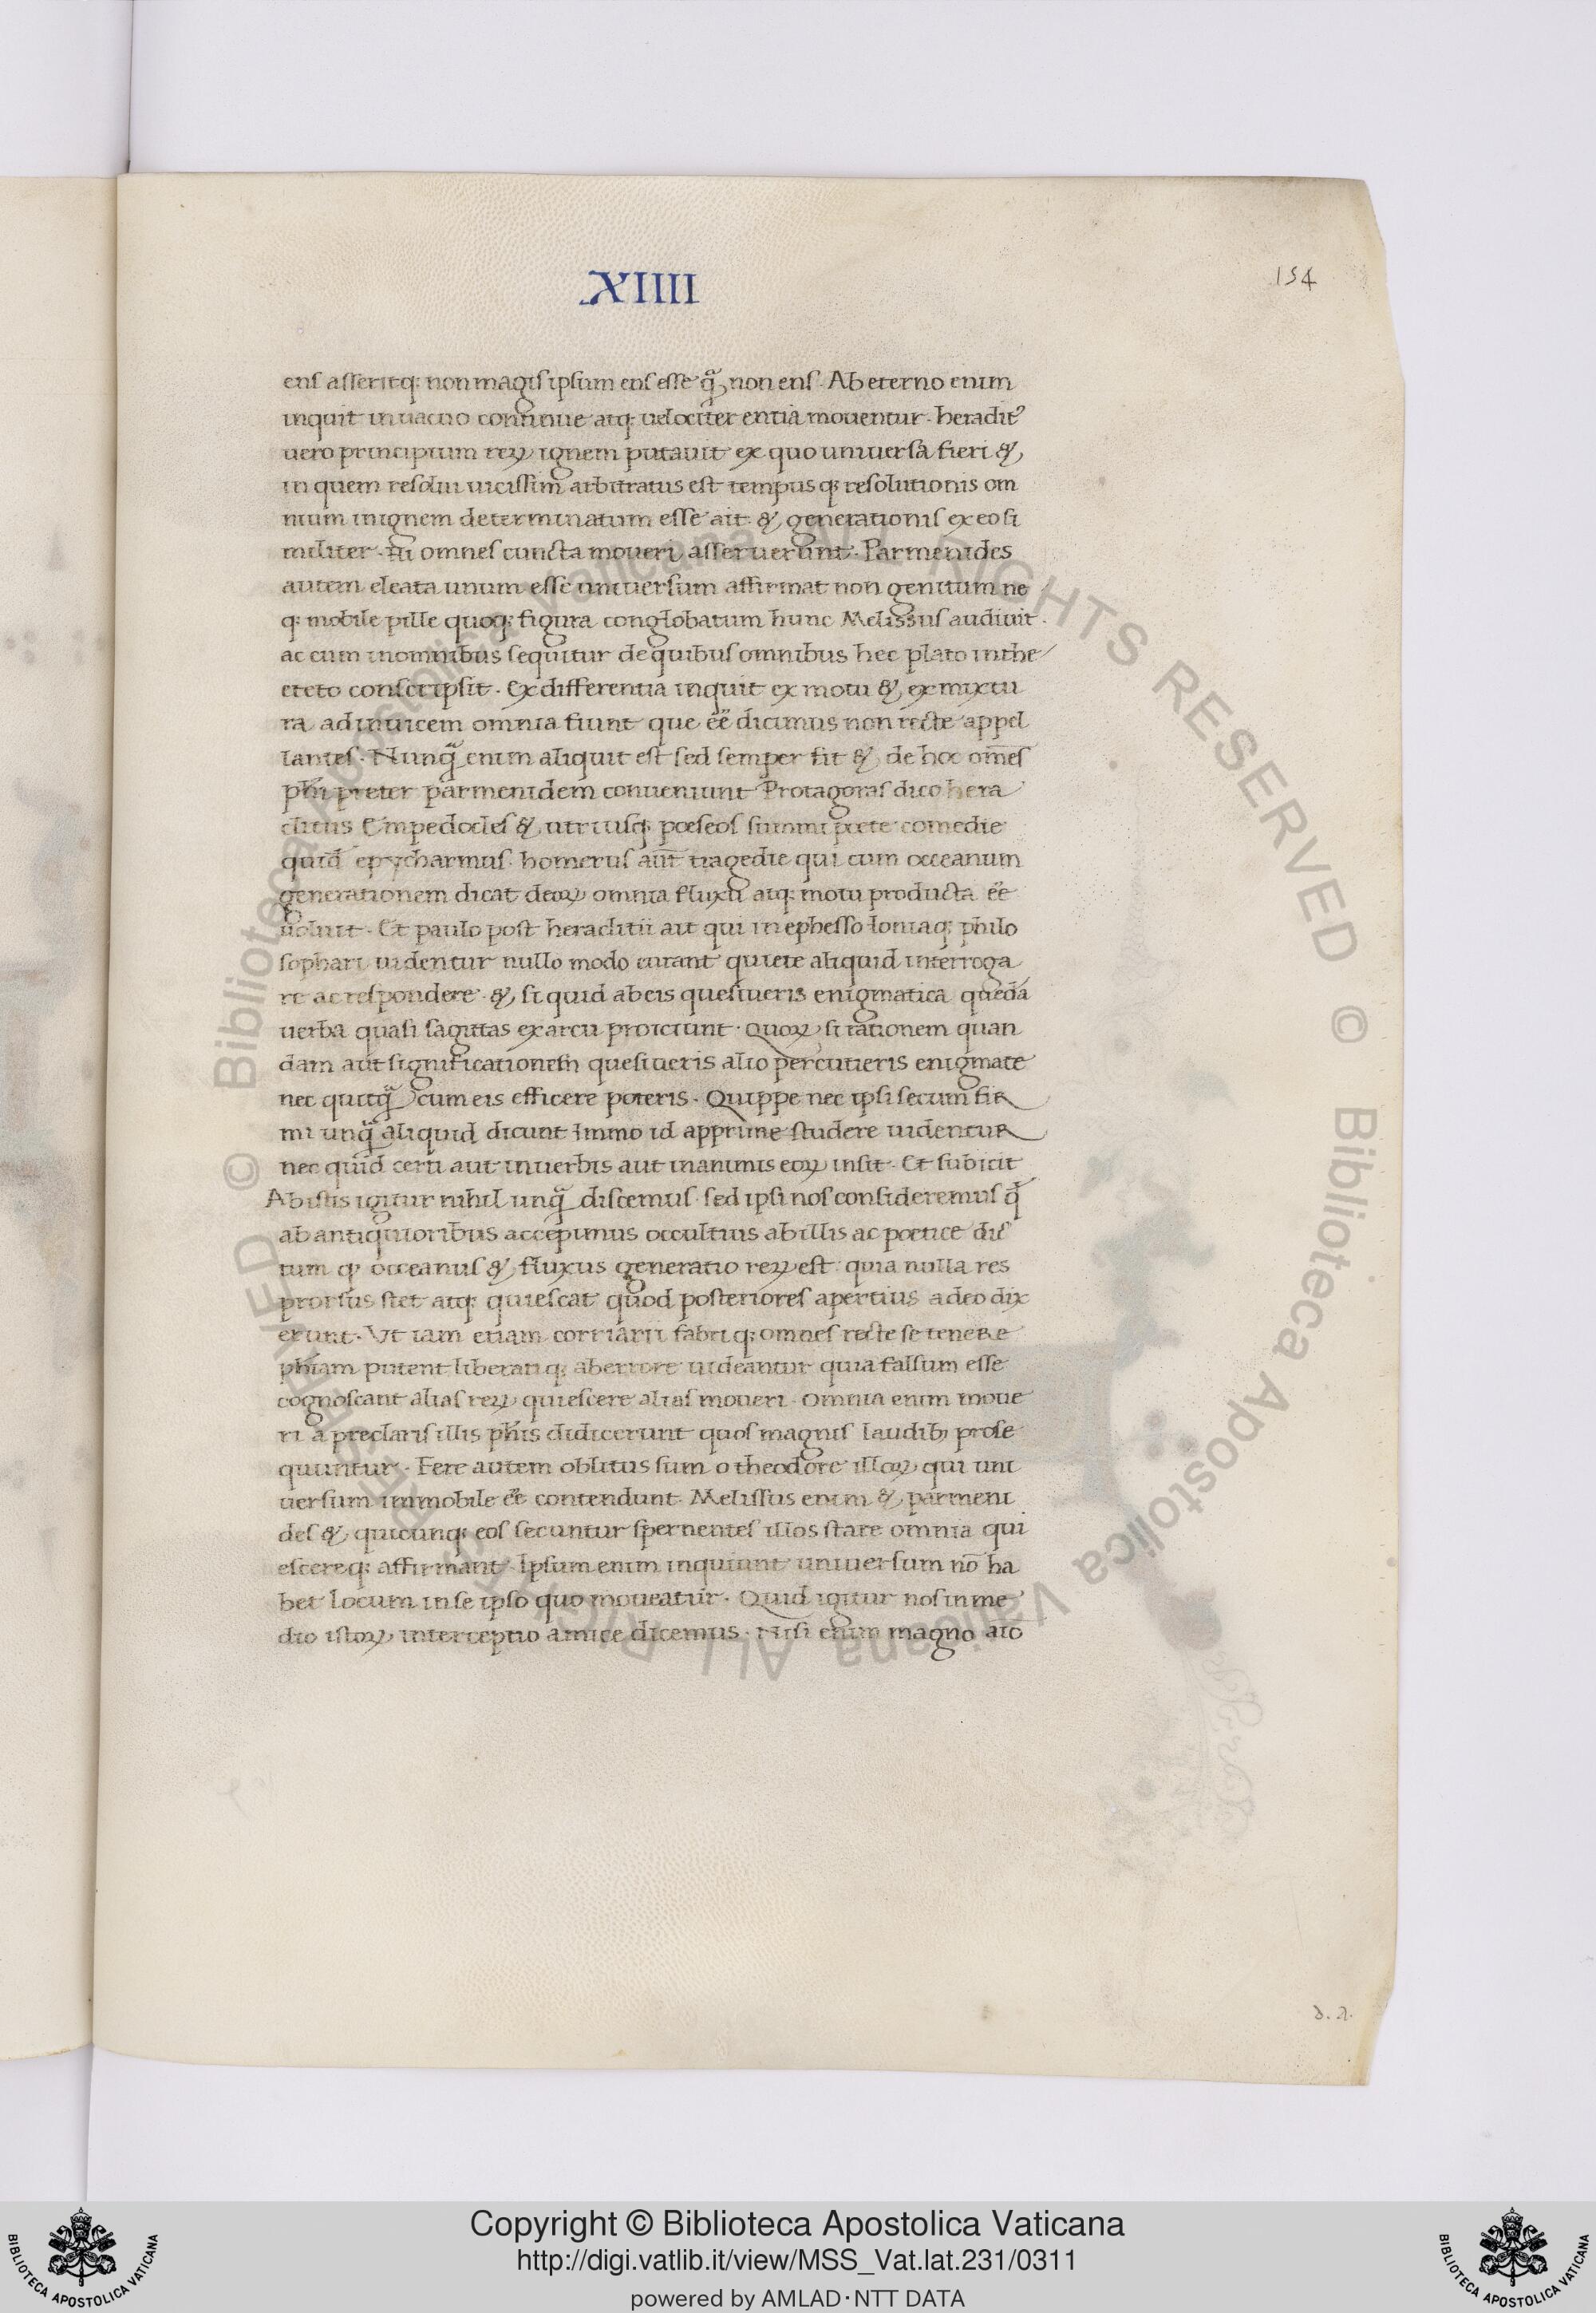 XIIII
154
ens asseritq; non magis ipsum ens esse q̃ non ens. Ab eterno enim
inquit in uacuo continue atq; uelociter entia mouentur. heraclit9
uero principium reꝝ ignem putauit ex quo uniuersa fieri &
in quem resolui uicissim arbitratus est tempus q; resolutionis om
nium in ignem determinatum esse ait & generationis ex eo si
militer. omnes cuncta moueri asseruerunt. Parmenides
autem eleata unum esse uniuersum affirmat non genitum ne
q; mobile pille quoq; figura conglobatum hunc Melissus audiuit.
ac cum in omnibus sequitur de quibus omnibus hec plato in the
eteto conscripsit. Ex differentia inquit ex motu & ex mixtu
ra ad inuicem omnia fiunt que ee̅ dicimus non recte appel
lantes. Nunq̃ enim aliquit est sed semper fit & de hoc om̅es
phi̅ preter parmenidem conueniunt Protagoras dico hera
clitus Empedocles & utriusq; poeseos summi poete comedie
quid epycharmus. homerus aut̅ tragedie qui cum occeanum
generationem dicat deoꝝ omnia fluxu atq; motu producta ee̅
uoluit. Et paulo post heraclitii ait qui in ephesso Ioniaq; philo
sophari uidentur nullo modo curant quiete aliquid interroga
re ac respondere & si quid ab eis quesiueris enigmatica queda̅
uerba quasi sagittas ex arcu proiciunt. Quoꝝ si rationem quan
dam aut significationem quesiueris alio percutieris enigmate
nec quicq̃ cum eis efficere poteris. Quippe nec ipsi secum fir
mi unq̃ aliquid dicunt Immo id apprime studere uidentur
nec quid certi aut in uerbis aut in animis eoꝝ insit. Et subicit
Ab istis igitur nihil unq̃ discemus. sed ipsi nos consideremus q̄
ab antiquioribus accepimus occultius ab illis ac poetice dic
tum q; occeanus & fluxus generatio reꝝ est: quia nulla res
prorsus stet atq; quiescat quod posteriores apertius adeo dix
erunt. Vt iam etiam corriarii fabri q; omnes recte se tenere
phi̅am putent liberati q; ab errore uideantur quia falsum esse
cognoscant alias reꝝ quiescere alias moueri. Omnia enim moue
ri a preclaris illis phi̅s didicerunt quos magnis laudib; prose
quuntur. Fere autem oblitus sum o theodore illoꝝ qui uni
uersum immobile ee̅ contendunt. Melissus enim & parmeni
des & quicunq; eos secuntur spernentes illos stare omnia qui
escereq; affirmant. Ipsum enim inquiunt uniuersum no̅ ha
bet locum in se ipso quo moueatur. Quid igitur nos in me
dio istoꝝ interceptio amice dicemus. Nisi enim magno aio̅
© Biblioteca Apostolica Vaticana ALL RIGHTS RESERVED © Biblioteca Apostolica Vaticana ALL RIGHTS RESERVED
Copyright © Biblioteca Apostolica Vaticana
http://digi.vatlib.it/view/MSS_Vat.lat.231/0311
powered by AMLAD·NTT DATA
BIBLIOTECA APOSTOLICA VATICANA
BIBLIOTECA APOSTOLICA VATICANA